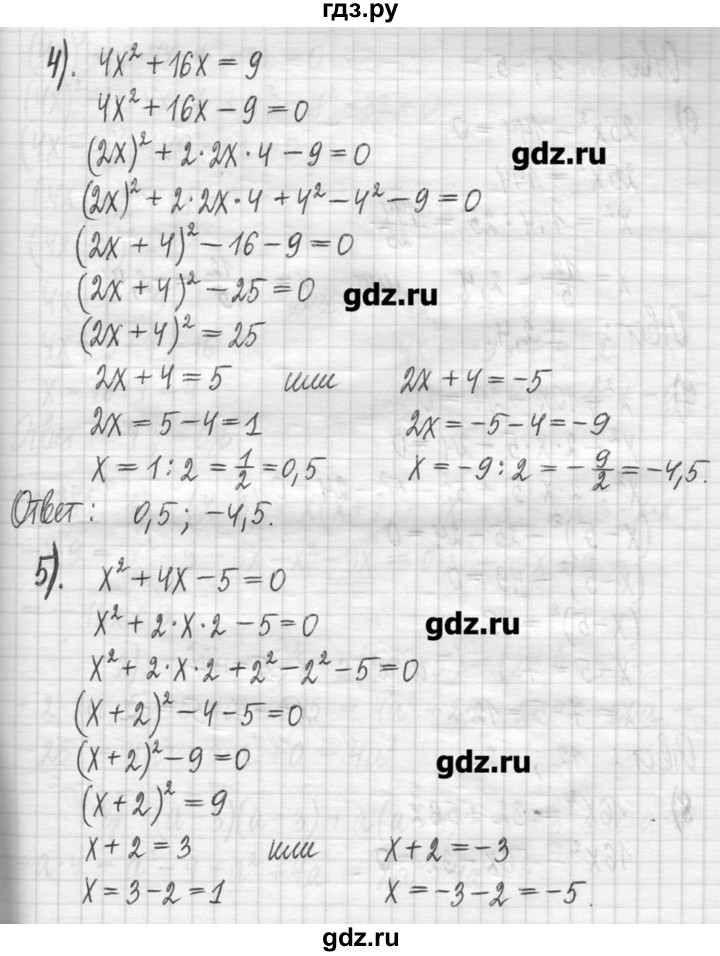 гдз.ру
4). 4x² + 16x = 9
4x² + 16x - 9 = 0
(2x)² + 2·2x·4 - 9 = 0
gdz.ru
(2x)² + 2·2x·4 + 4² - 4² - 9 = 0
(2x + 4)² - 16 - 9 = 0
(2x + 4)² - 25 = 0
gdz.ru
(2x + 4)² = 25
2x + 4 = 5 или 2x + 4 = -5
2x = 5 - 4 = 1 2x = -5 - 4 = -9
x = 1 : 2 = 1/2 = 0,5 x = -9 : 2 = -9/2 = -4,5.
Ответ: 0,5; -4,5.
5). x² + 4x - 5 = 0
x² + 2·x·2 - 5 = 0
gdz.ru
x² + 2·x·2 + 2² - 2² - 5 = 0
(x + 2)² - 4 - 5 = 0
(x + 2)² - 9 = 0
gdz.ru
(x + 2)² = 9
x + 2 = 3 или x + 2 = -3
x = 3 - 2 = 1 x = -3 - 2 = -5.
gdz.ru